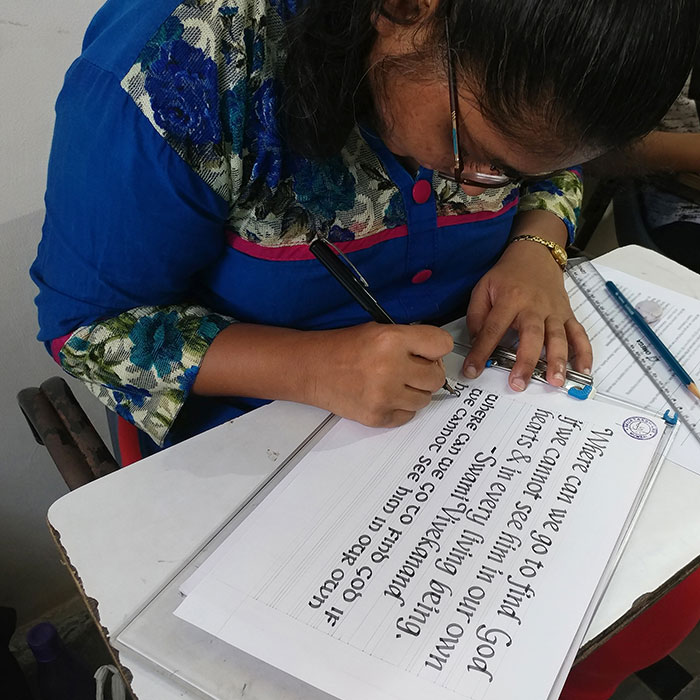 Where can we go to find God
If we cannot see him in our own
hearts & in every living being.
-Swami Vivekanand
where can we go to find god if
we cannot see him in our own